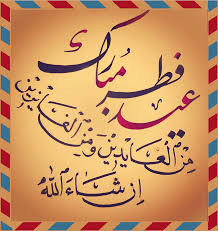 عيد فطر مبارك
من العايدين ومن الفايزين
إن شاء الله